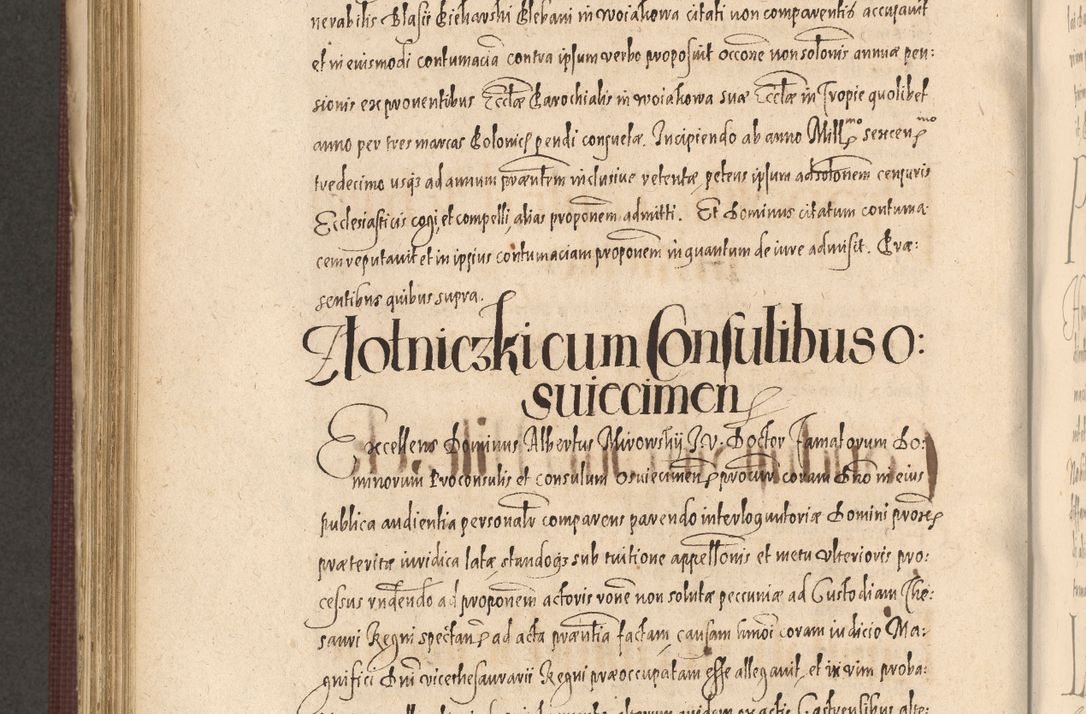 nerabilis Blasii Biehavski Plebani in woiakowa citati non comparentis accusavit
et in eiusmodi contumacia contra ipsum verbo proposuit occone non solonis annuæ pen:
sionis ex proventibus Ecclæ Parochialis in woiakowa suæ Ecclæ in Tropie quolibet
anno per tres marcas Polonic pendi consuetæ. Incipiendo ab anno Mill^mo sexcen^mo
tredecimo usq3 ad annum præntem inclusive retentæ, petens ipsum ad solonem censuris
Ecclesiasticis cogi, et compelli, alias proponem admitti. Et Dominus citatum contuma
cem reputavit et in ipsius contumaciam proponem in quantum de iure admisit. Præ:
sentibus quibus supra.
Zlotniczki cum Consulibus O:
suiecimen
Excellens Dominus Albertus Mirowskij I. V. Doctor Famatorum Do:
minorum Proconsulis et consulum Osuiecimen procur coram Dno in eius
publica audientia personalr comparens parendo interloqutoriæ Domini pro
præteritæ iuridica latæ, stando q3 sub tuitione appellonis et metu ulterioris pro:
cessus rndendo ad proponem actoris rone non solutæ pecuniæ ad Custodiam The:
sauri Regni spectan ad acta præntia factam, causam hmoi coram iudicio Ma:
gnifici Dni vicethesaurarii Regni præoccupatam esse allegavit, et in vim proba: